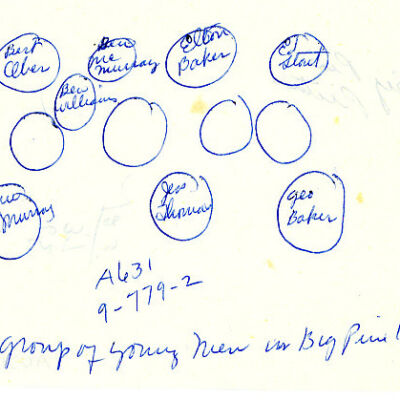 Bert
Ober
Ben
Mc
Murray
Elton
Baker
Ed
Stout
Ben
Williams
Murray
Jess
Thomas
Geo
Baker
A631
9-779-2
group of young men in Big Pine